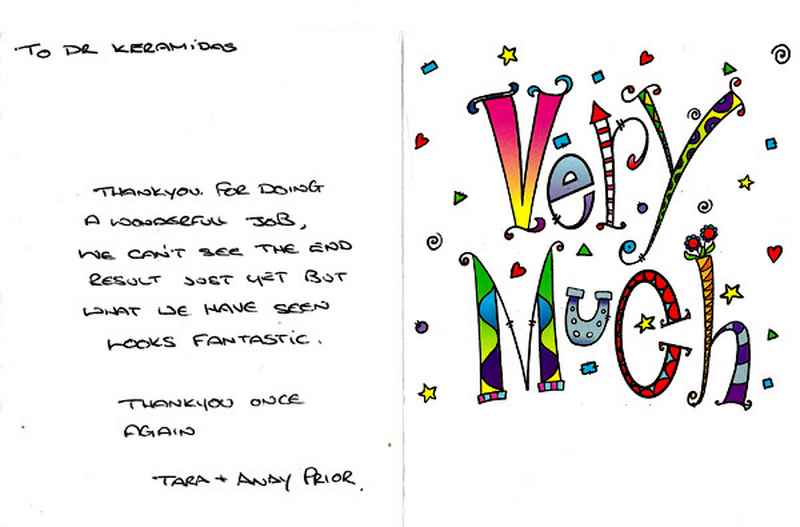 TO DR KERAMIDAS
THANKYOU. FOR DOING
A WONDERFULL JOB,
WE CAN'T SEE THE END
RESULT JUST YET BUT
WHAT WE HAVE SEEN
LOOKS FANTASTIC.
THANKYOU ONCE
AGAIN
TARA + ANDY PRIOR.
Very
Much